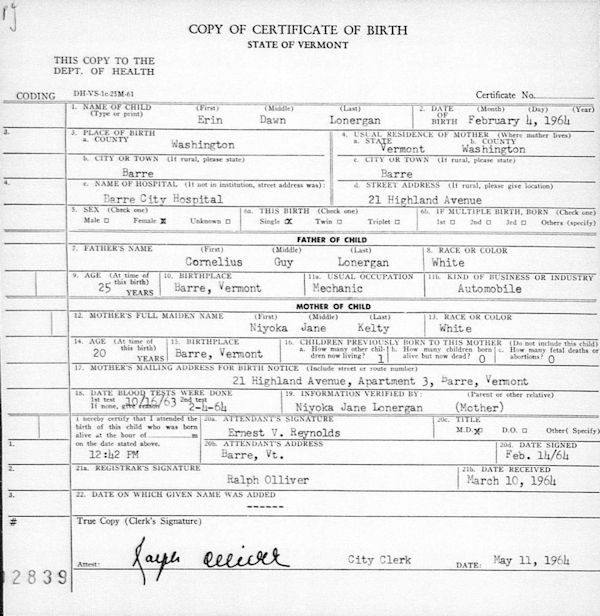 COPY OF CERTIFICATE OF BIRTH
STATE OF VERMONT
THIS COPY TO THE
DEPT. OF HEALTH
CODING DH-VS-1c-25M-61 Certificate No.
1. NAME OF CHILD (First) (Middle) (Last) 2. DATE (Month) (Day) (Year)
(Type or print) OF
Erin Dawn Lonergan BIRTH February 4, 1964
3. 3. PLACE OF BIRTH 4. USUAL RESIDENCE OF MOTHER (Where mother lives)
a. COUNTY a. STATE b. COUNTY
Washington Vermont Washington
b. CITY OR TOWN (If rural, please state) c. CITY OR TOWN (If rural, please state)
Barre Barre
4. c. NAME OF HOSPITAL (If not in institution, street address was): d. STREET ADDRESS (If rural, please give location)
Barre City Hospital 21 Highland Avenue
5. SEX (Check one) 6a. THIS BIRTH (Check one) 6b. IF MULTIPLE BIRTH, BORN (Check one)
Male Female x Unknown Single x Twin Triplet 1st 2nd 3rd Others (specify)
FATHER OF CHILD
7. FATHER'S NAME (First) (Middle) (Last) 8. RACE OR COLOR
Cornelius Guy Lonergan White
9. AGE (At time of this birth) 10. BIRTHPLACE 11a. USUAL OCCUPATION 11b. KIND OF BUSINESS OR INDUSTRY
25 YEARS Barre, Vermont Mechanic Automobile
MOTHER OF CHILD
12. MOTHER'S FULL MAIDEN NAME (First) (Middle) (Last) 13. RACE OR COLOR
Niyoka Jane Kelty White
14. AGE (At time of this birth) 15. BIRTHPLACE 16. CHILDREN PREVIOUSLY BORN TO THIS MOTHER (Do not include this child)
a. How many other children now living? 1 b. How many children born alive but now dead? 0 c. How many fetal deaths or abortions? 0
20 YEARS Barre, Vermont
17. MOTHER'S MAILING ADDRESS FOR BIRTH NOTICE (Include street or route number)
21 Highland Avenue, Apartment 3, Barre, Vermont
18. DATE BLOOD TESTS WERE DONE 19. INFORMATION VERIFIED BY: (Parent or other relative)
1st test 10/16/63 2nd test
If none, give reason 2-4-64 Niyoka Jane Lonergan (Mother)
I hereby certify that I attended the 20a. ATTENDANT'S SIGNATURE 20c. TITLE
birth of this child who was born Ernest V. Reynolds M.D. x D.O. Other( Specify)
alive at the hour of m
1. on the date stated above. 20b. ATTENDANT'S ADDRESS 20d. DATE SIGNED
12:42 PM Barre, Vt. Feb. 14/64
2. 21a. REGISTRAR'S SIGNATURE 21b. DATE RECEIVED
Ralph Olliver March 10, 1964
3. 22. DATE ON WHICH GIVEN NAME WAS ADDED
------
# True Copy (Clerk's Signature)
Attest: Ralph Olliver City Clerk DATE: May 11, 1964
02839